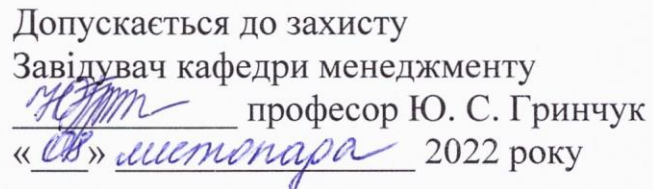 Допускається до захисту
Завідувач кафедри менеджменту
професор Ю. С. Гринчук
«08» листопада 2022 року